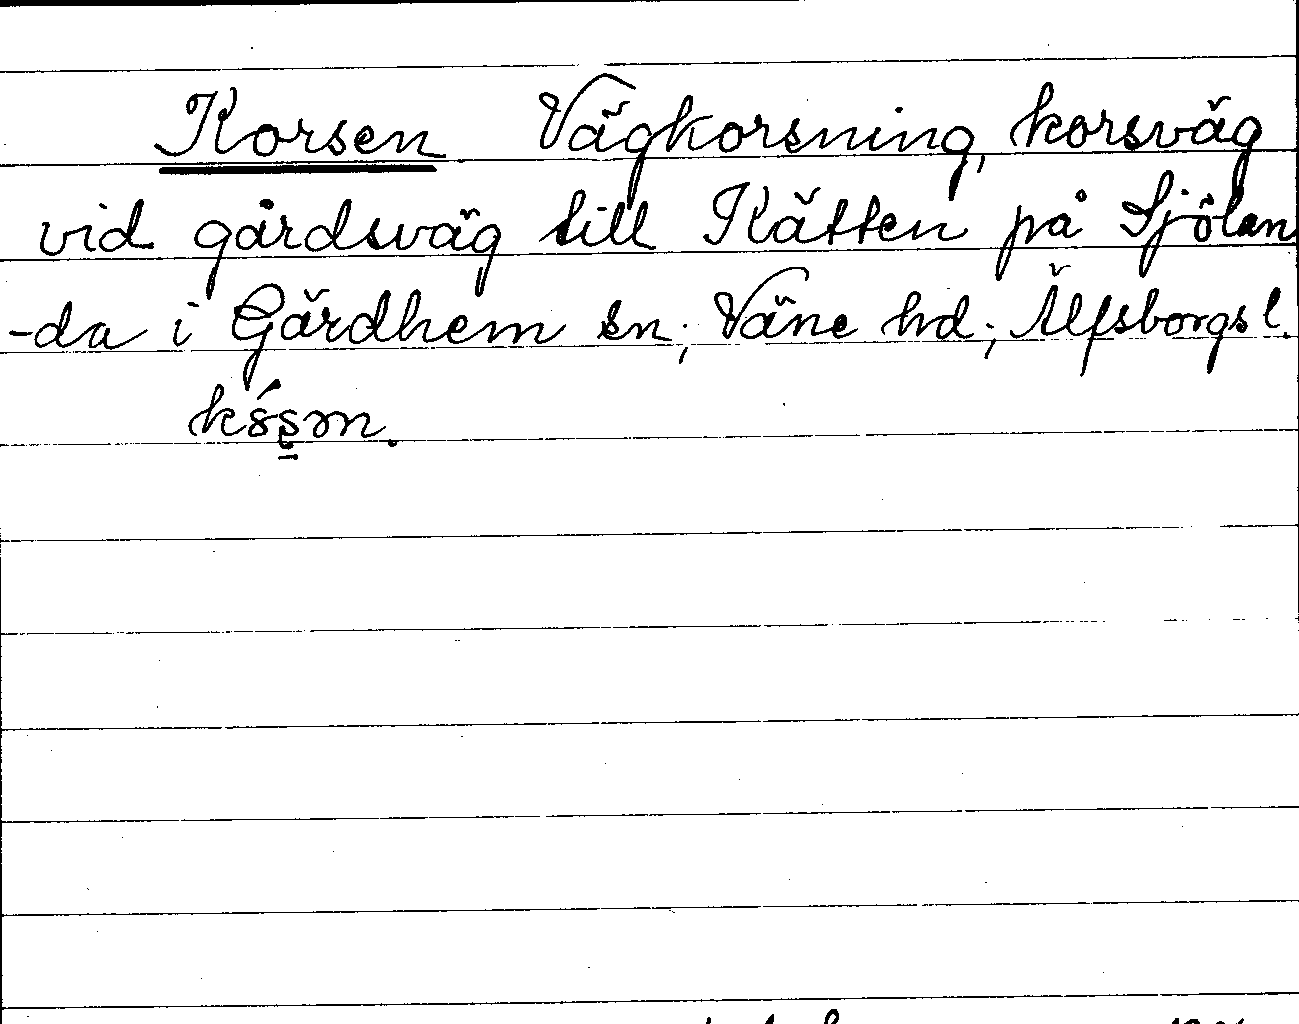 Korsen Vägkorsning, korsväg
vid gårdsväg till Kätten på Sjölan
-da i Gärdhem sn; Väne hd; Älfsborgs l.